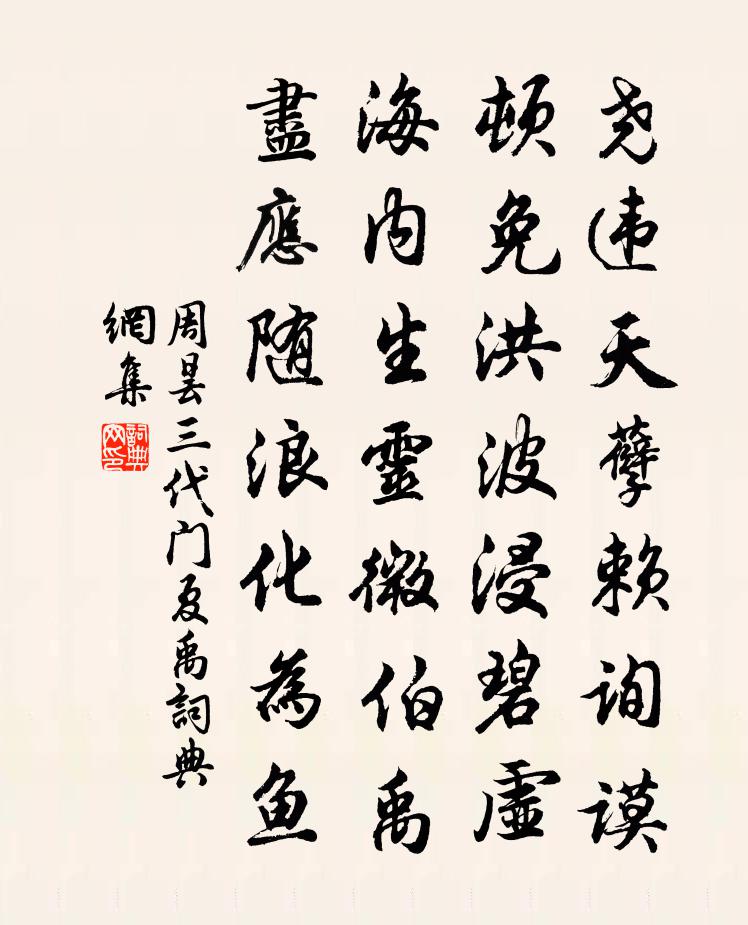 尧违天孽赖询谟
顿免洪波浸碧虚
海内生靈微伯禹
盡應随浪化為鱼
周昙三代门夏禹詞典
網集
詞典
网印